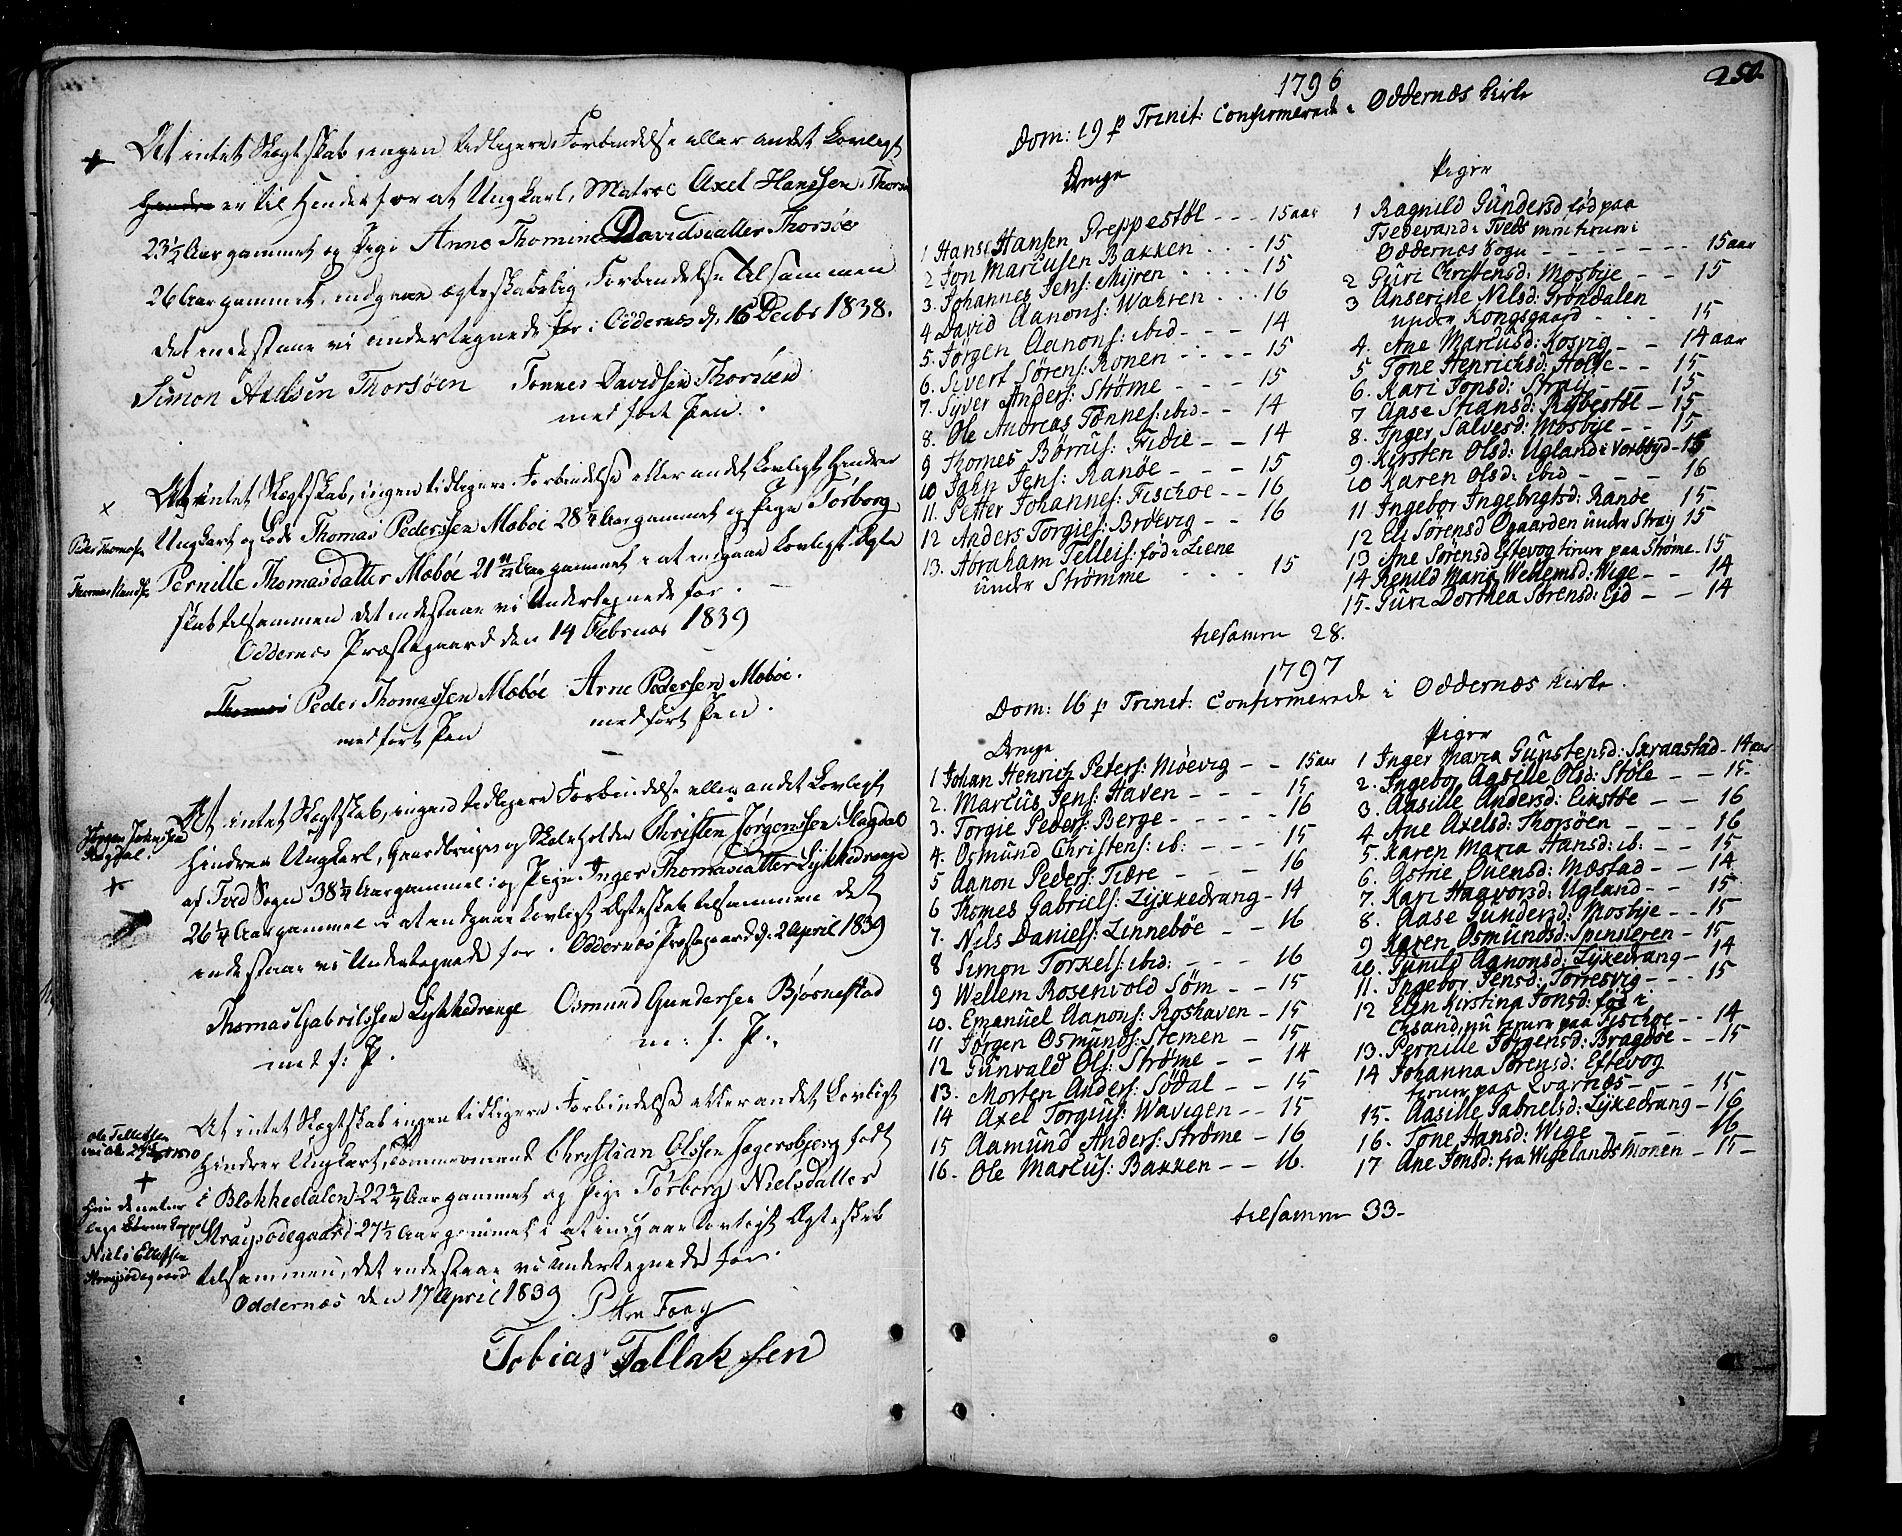 At intet Slægtskab, ingen tidligere Forbindelse eller andet Lovligt
er til Hinder for at Ungkarl, Matros Axel Hanssen Thorsø
23½ Aar gammel og Pige Anne Thomine Davidsdatter Thorsøe
26 Aar gammel, indgaae ægteskabelig Forbindelse tilsammen
det indestaae vi undertegnede for i Oddernæs d. 16 Decbr 1838.
Simon Axelsen Thorsøen Tønnes Davidsen Thorsøen
med ført Pen.
At intet Slægtskab, ingen tidligere Forbindelse eller andet Lovligt Hindrer
Peder Thomassen
Ungkarl og Lods Thomas Pederssen Mæbøe 28¼ Aar gammel og Pige Torborg
Pernille Thomasdatter Mæbøe 21 11/12 Aar gammel i at indgaae Lovligt Ægte
skab tilsammen det indestaae vi Undertegnede for.
Oddernæs Præstegaard den 14 Februar 1839
Thomas Peder Thomassen Mæbøe Arne Pedersen Mæbøe.
med ført Pen med ført Pen.
At intet Slægtskab, ingen tidligere Forbindelse eller andet Lovligt
Jørgen
Hindrer Ungkarl, Gaardbruger og Skoleholder Christen Jørgenssen Slagdal
af Tved Sogn 38¼ Aar gammel og Pige Inger Thomasdatter Lykkedrange
26¼ Aar gammel i at indgaae Lovligt Ægteskab tilsammen det
indestaae vi Undertegnede for. Oddernæs Præstegaard d. 2 April 1839
Thomas Gabrielssen Lykkedrange Osmund Gundersen Bjørnestad
med f: P. m: f. P.
At intet Slægtskab ingen tidligere Forbindelse eller andet Lovligt
Ole Tellefsen
Hindrer Ungkarl, Tømmermand Christian Olssen Jegersbjerg født
i Blokkedalen 22¾ Aar gammel og Pige Torborg Nielsdatter
Strayødegaard 27½ Aar gammel i at indgaae Lovligt Ægteskab
Niels Ellefsen
Strayødegaard
tilsammen, det indestaae vi Undertegnede for.
Oddernæs den 17 April 1839
Tobias Tallaksen
250.
1796
Dom: 19 p Trinit: Confirmerede i Oddernæs Kirke
Drenge
1 Hans Hansen Preppestøl - - - 15 aar
2 Jon Marcusen Bakken . . . . 15
3. Johannes Jens: Myren . . . . 15
4 David Aanons: Wahren . . . 16
5. Jörgen Aanons: ibid - - - 14
6. Sivert Sörens: Ronen . . . . 15
7. Syver Anders: Strøme - - - 15
8. Ole Andreas Tønnes: ibid - - 14
9 Thomes Børrus: Fidie - - 14
10 John Jens: Ranøe - - - 15
11. Petter Johannes: Fischoe - - 16
12 Anders Torgies: Brøevig - - 16
13. Abraham Telleis: fød i Liene
under Strömme . . . 15
Piger
1 Ragnild Gundersd fød paa
Tvedevand i Tveds
Oddernæs Sogn - - - - - - 15 aar
2 Guri Christensd: Mosbye - - 15
3 Anserine Nilsd: Grøndalen
under Kongsgaard . . . 15
4. Ane Marcusd: Kosvig - - 14 aar
5 Tone Henrichsd: Holte - - 15
6. Kari Jonsd: Straij - - - 15
7 Aase Stiansd: Rybestøl - 15
8. Inger Salvesd: Mosbye - - 15
9. Kirsten Olsd: Ugland i Vorbbygd - 15
10 Karen Olsd: ibid - - - - 16
11 Ingebor Ingebrigtsd: Ranøe 15
12 Eli Sörensd Ogaarden under Straij 15
13 Ane Sørensd Eftevog tienr paa Strøme - 15
14 Renild Maria Wellemsd: Wige - - 14
15. Guri Dorthea Sørensd: Ejd - - 14
tilsamm 28.
1797
Dom: 16 p Trinit: Confirmerede i Oddernæs Kirke.
Drenge
1 Johan Henrich Peters: Möevig - - 15 aar
2. Marcus Jens: Haven - - - - 15
3. Torgie Peders: Berge - - - - - 16
4. Osmund Christens: ib: - - - - 15
5 Aanon Peders: Tiære - - - - 16
6 Thomes Gabriels: Lykkedrang - 14
7. Nils Daniels: Linnebøe - - 16
8 Simon Torkels: ibid: - - - 16
9 Wellem Rosenvold Söm - - 15
10. Emanuel Aanons: Roshaven - 15
11 Jörgen Osmunds: Stemen - 15
12 Gunvald Ols: Strøme - - 14
13. Morten Anders: Södal - - 15
14 Axel Torgius: Wavigen - - 15
15 Aamund Anders: Strøme - 16
16. Ole Marcus: Bakken - - 16.
Piger
1 Inger Maria Gunstensd: Skraastad - 14 aar
2. Ingebor Aasille Olsd: Støle - - 15
3. Aasille Andersd: Eikstøe - - 16
4 Ane Axelsd: Thorsöen - - - 16
5. Karen Maria Hansd: ib. - - 15
6. Astrie Ouensd: Mæstad - - 14
7. Kari Haavorsd: Ugland - - 15
8. Aase Gundersd: Mosbye - - 15
9 Karen Osmundsd: Spinsleren - 15
10. Gunild Aanonsd: Lykedrang - 14
11. Ingebor Jensd: Torresvig - - - 15
12 Elen Kirstina Jonsd: fød i
Chsand, nu tienr paa Fischoe - - 14
13. Pernille Jørgensd: Bragdøe - - 15
14 Johanna Sørensd: Eftevog
tienr paa Qvarnæs - - - - 15
15. Aasille Gabrielsd: Lykedrang - 16
16. Tone Hansd: Wige - - - - 16
17 Ane Jonsd: fra Wigelands Monen - 15 -
tilsamm 33 -